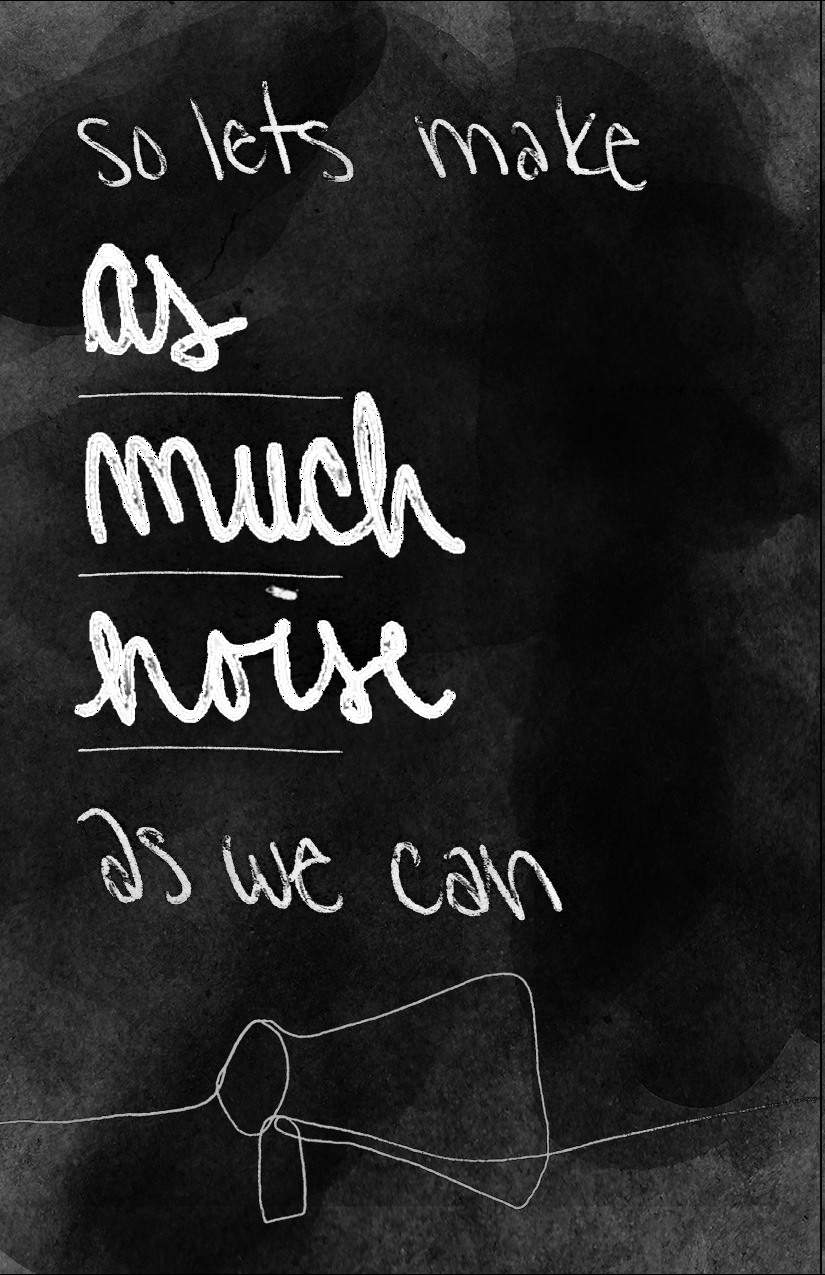 so lets make
as
much
noise
as we can